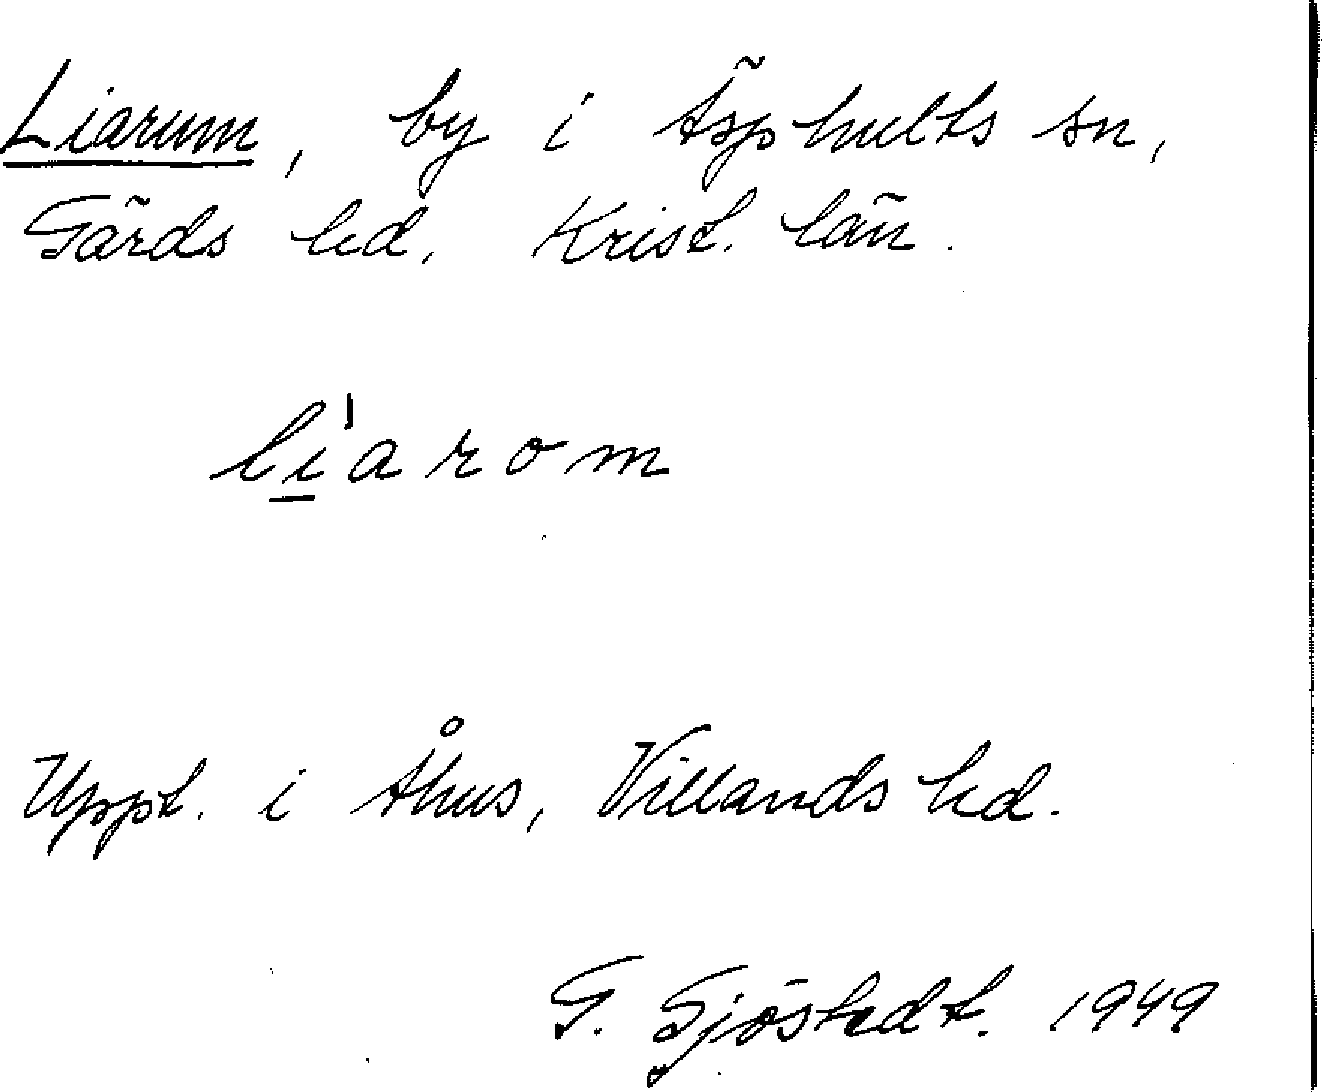 Liarum, by i Äsphults sn,
Gärds hd. Krist. län.
li̲'arom
Uppt. i Åhus, Villands hd.
G. Sjöstedt. 1949